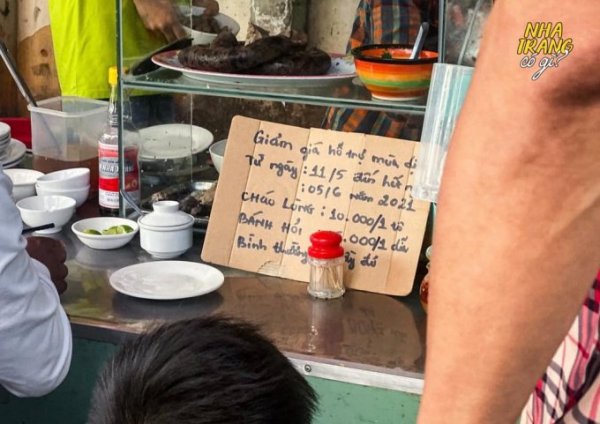 NHA
TRANG
có gì!
Giảm giá hỗ trợ mùa dị
Từ ngày : 11/5 đến hết n
: 05/6 năm 2021
CHÁO LÒNG : 10.000/1 tô
BÁNH HỎI 000/1 dĩa
Bình thường đó